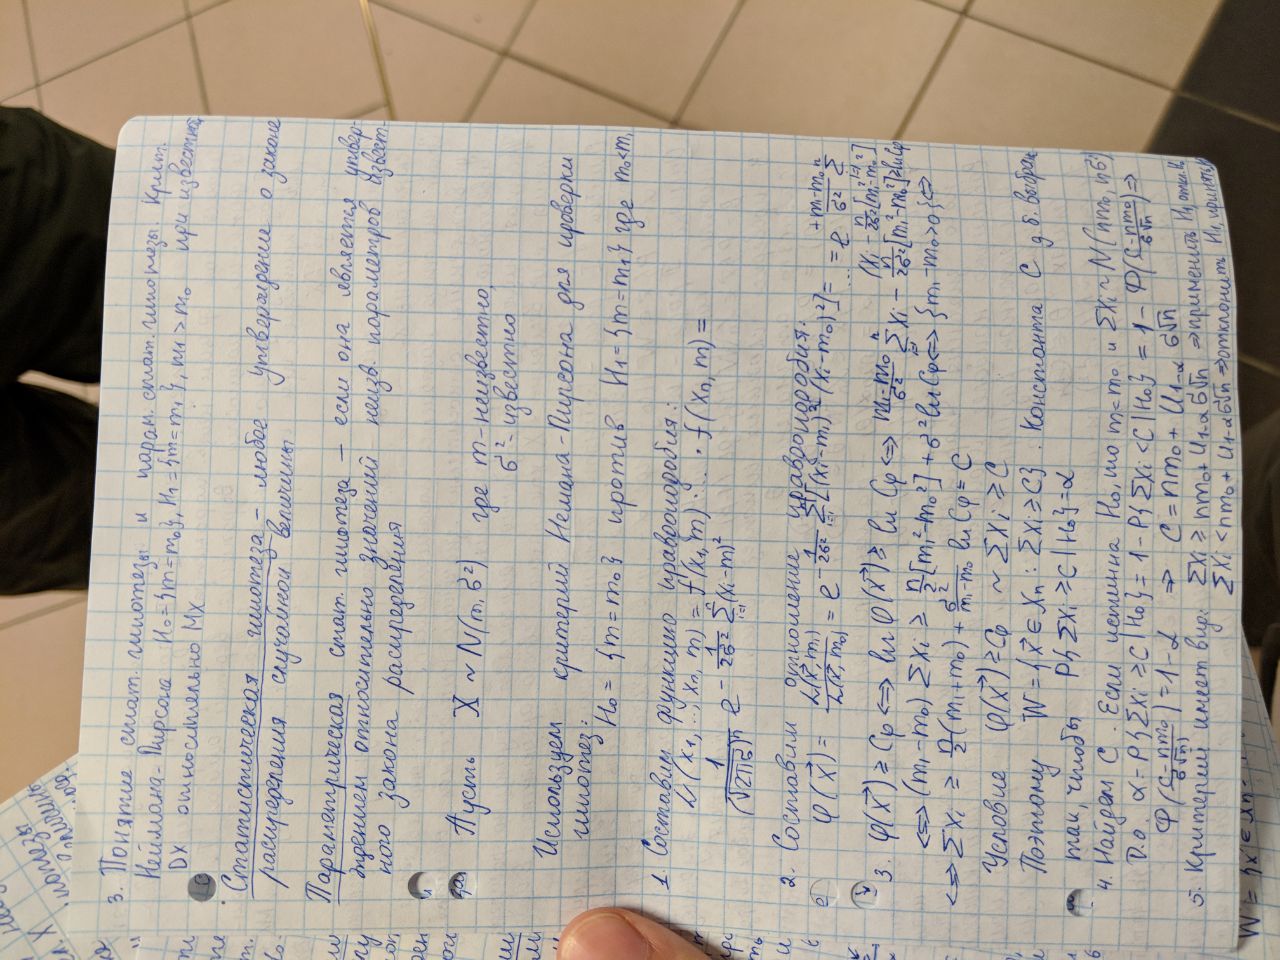 3. Понятие стат. гипотезы и парам. стат. гипотезы. Крит.
Неймана-Пирсона H₀={m=m₀}, H₁={m=m₁}, m₁>m₀ при известной
DX относительно MX
Статистическая гипотеза - любое утверждение о законе
распределения случайной величины
Параметрическая стат. гипотеза - если она является утвер-
ждением относительно значений неизв. параметров извест-
ного закона распределения
Пусть X ~ N(m, σ²) где m-неизвестно,
σ² - известно
Используем критерий Немана-Пирсона для проверки
гипотез:
H₀ = {m=m₀} против H₁={m=m₁} где m₀<m₁
1. Составим функцию правдоподобия:
L(x₁,..,xₙ, m) = f(x₁,m)· ... · f(xₙ,m) =
1/(√2πσ)ⁿ e^(- 1/2σ² Σᵢ₌₁ⁿ(xᵢ-m)²)
2. Составим отношение правдоподобия:
φ(x⃗) = L(x⃗,m₁)/L(x⃗,m₀) = e^(- 1/2σ² Σᵢ₌₁ⁿ[(xᵢ-m₁)²-(xᵢ-m₀)²]) = ... = e^(+ (m₁-m₀)/σ² Σᵢ₌₁ⁿ
xᵢ - n/2σ²[m₁²-m₀²])
3. φ(x⃗) ≥ Cφ ⟺ ln φ(x⃗) ≥ ln Cφ ⟺ (m₁-m₀)/σ² Σᵢ₌₁ⁿ xᵢ - n/2σ²[m₁²-m₀²] ≥ ln Cφ
⟺ (m₁-m₀) Σxᵢ ≥ n/2[m₁²-m₀²] + σ² ln Cφ ⟺ {m₁-m₀>0} ⟺
⟺ Σxᵢ ≥ n/2(m₁+m₀) + σ²/(m₁-m₀) ln Cφ = C
Условие φ(x⃗) ≥ Cφ ~ Σxᵢ ≥ C
Поэтому W = {x⃗ ∈ Xₙ : Σxᵢ ≥ C}. Константа C д.б. выбран
так, чтобы P{Σxᵢ ≥ C | H₀} = α
4. Найдем C. Если истинна H₀, то m=m₀ и Σxᵢ ~ N(nm₀, nσ²)
Т.о. α = P{Σxᵢ ≥ C | H₀} = 1 - P{Σxᵢ < C | H₀} = 1 - Φ((C-nm₀)/σ√n) ⇒
Φ((C-nm₀)/σ√n) = 1-α ⇒ C = nm₀ + U₁₋α σ√n
5. Критерий имеет вид: Σxᵢ ≥ nm₀ + U₁₋α σ√n ⇒ применить H₁, откл. H₀
Σxᵢ < nm₀ + U₁₋α σ√n ⇒ отклонить H₁, принять H₀